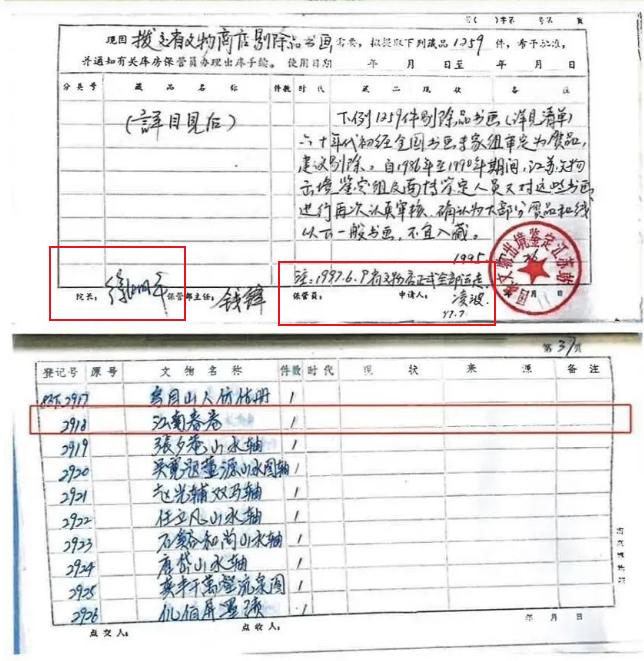 字第 号第 页
现因 拨交省文物商店剔除品书画 需要，拟提取下列藏品 1259 件，希予批准，
并通知有关库房保管员办理出库手续。 使用日期 年 月 日至 年 月 日
分类号 藏品名称 件数 时代 藏品现状 备注
(详目见后)
下列1259件剔除品书画(详见清单)
六十年代初经全国书画专家组审定为赝品,
建议剔除。自1986年至1990年期间,江苏文物
出境鉴定组及南博鉴定人员又对这些书画
进行再次认真审核,确认为大部分赝品和线
以下一般书画,不宜入藏。
1995
注:1997.6.9 省文物店正式全部
院长: 徐湖平 保管部主任: 钱锋 保管员: 申请人: 凌波
97.7
国家文物出境鉴定江苏站
月 日
第 37 页
登记号 原号 文物名称 件数 时代 现状 来源 备注
2917 乌目山人仿古册 1
2918 江南春卷 1
2919 张夕庵山水轴 1
2920 吴宽祖董源山水图轴 1
2921 赵光辅双马轴 1
2922 任立凡山水轴 1
2923 石谿和尚山水轴 1
2924 萧岱山水轴 1
2925 万壑流泉图 1
2926 1
点交人: 点收人: 年 月 日